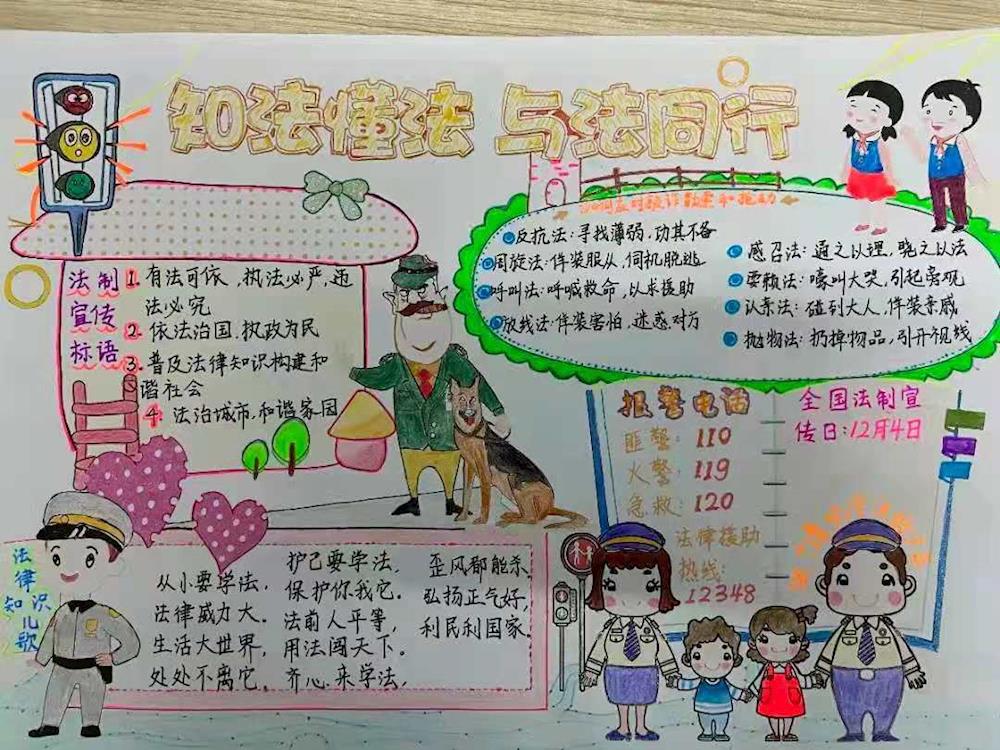 知法懂法 与法同行
法制
宣传
标语
1. 有法可依，执法必严，违
法必究
2. 依法治国，执政为民
3. 普及法律知识构建和
谐社会
4. 法治城市，和谐家园
反抗法：寻找薄弱，功其不备
周旋法：佯装服从，伺机脱逃
呼叫法：呼喊救命，以求援助
放线法：佯装害怕，迷惑对方
感召法：通之以理，晓之以法
耍赖法：嚎叫大哭，引起旁观
认亲法：碰到大人，佯装亲戚
抛物法：扔掉物品，引开视线
报警电话
匪警：110
火警：119
急救：120
法律援助
热线：
12348
全国法制宣
传日：12月4日
法律
知识
儿歌
从小要学法，
法律威力大。
生活大世界，
处处不离它。
护己要学法，
保护你我它。
法前人平等，
用法闯天下。
齐心来学法，
歪风都能杀
弘扬正气好，
利民利国家。